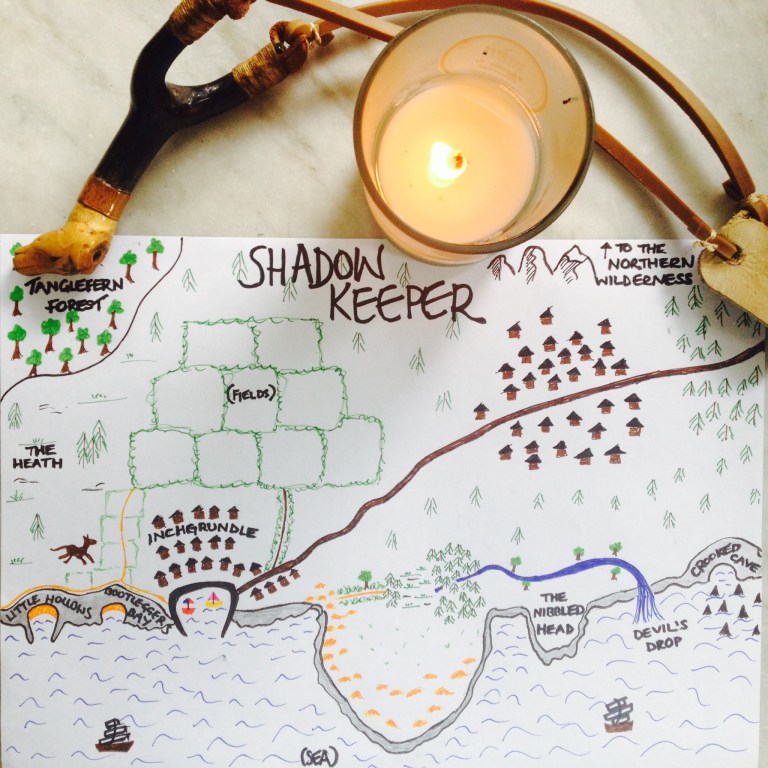 SHADOW
KEEPER
↑ TO THE
NORTHERN
WILDERNESS
TANGLEFERN
FOREST
(FIELDS)
THE
HEATH
INCHGRUNDLE
LITTLE HOLLOWS
BOOTLEGGERS
BAY
THE
NIBBLED
HEAD
DEVIL'S
DROP
CROOKED
CAVE
(SEA)